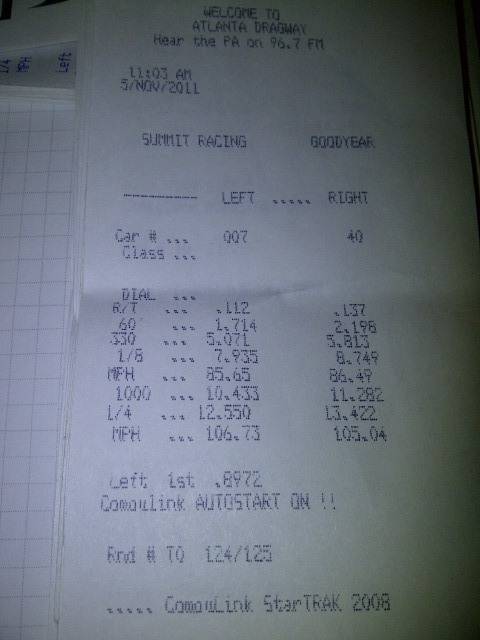 WELCOME TO
ATLANTA DRAGWAY
Hear the PA on 96.7 FM
11:03 AM
5/NOV/2011
SUMMIT RACING GOODYEAR
--------- LEFT ..... RIGHT
Car # ... 007 40
Class ...
DIAL ...
R/T ... .112 .137
60 ... 1.714 2.198
330 ... 5.071 5.813
1/8 ... 7.935 8.749
MPH ... 85.65 86.49
1000 ... 10.433 11.282
1/4 ... 12.550 13.422
MPH ... 106.73 105.04
Left 1st .8972
CompuLink AUTOSTART ON !!
Rnd # TO 124/125
..... CompuLink StarTRAK 2008
1/4
MPH
Left